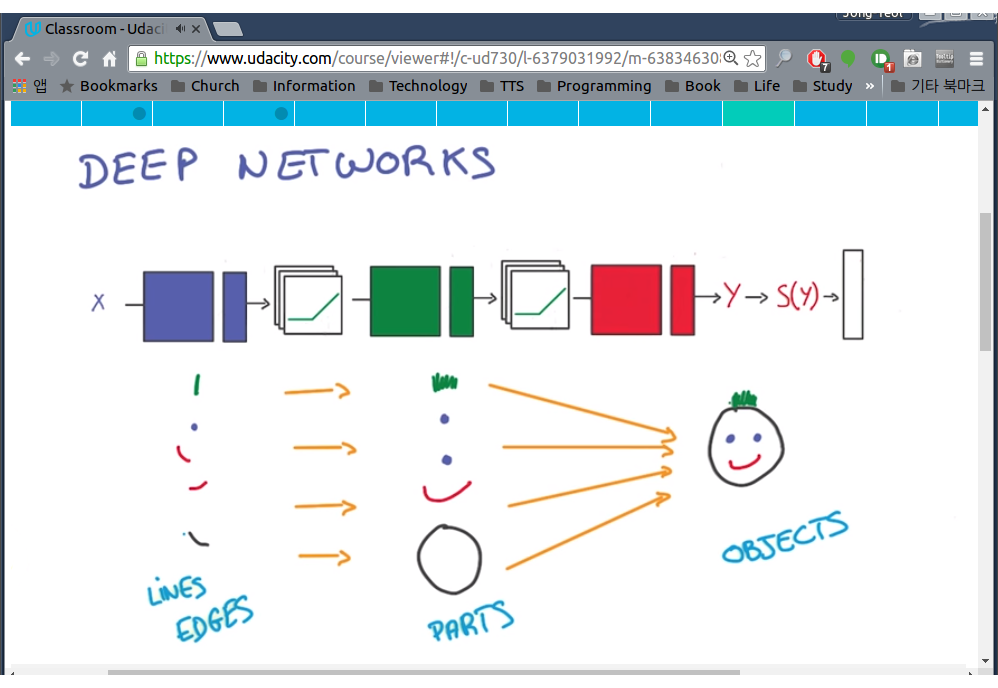 Jong Yeol
Classroom - Udaci
https://www.udacity.com/course/viewer#!/c-ud730/l-6379031992/m-63834630
7
1
앱 Bookmarks Church Information Technology TTS Programming Book Life Study » 기타 북마크
DEEP NETWORKS
X Y S(Y)
LINES
EDGES
PARTS
OBJECTS